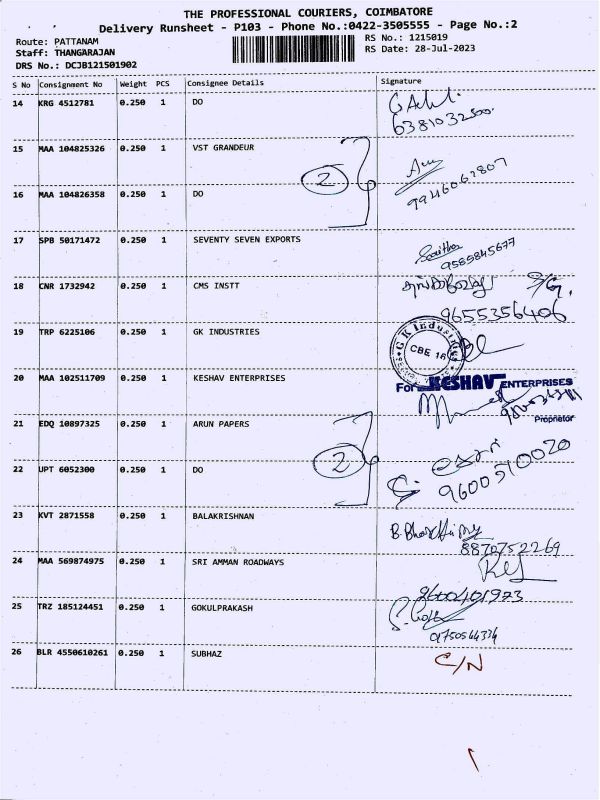 THE PROFESSIONAL COURIERS, COIMBATORE
Delivery Runsheet - P103 - Phone No.:0422-3505555 - Page No.:2
Route: PATTANAM
RS No.: 1215019
Staff: THANGARAJAN
RS Date: 28-Jul-2023
DRS No.: DCJB121501902
S No Consignment No Weight PCS Consignee Details Signature
14 KRG 4512781 0.250 1 DO
6381032500
15 MAA 104825326 0.250 1 VST GRANDEUR
2
16 MAA 104826358 0.250 1 DO
9946062807
17 SPB 50171472 0.250 1 SEVENTY SEVEN EXPORTS
9585845677
18 CNR 1732942 0.250 1 CMS INSTT
9655356406
19 TRP 6225106 0.250 1 GK INDUSTRIES
G K Industries
CBE 16
20 MAA 102511709 0.250 1 KESHAV ENTERPRISES
For KESHAV ENTERPRISES
Proprietor
21 EDQ 10897325 0.250 1 ARUN PAPERS
2
22 UPT 6052300 0.250 1 DO
9600510020
23 KVT 2871558 0.250 1 BALAKRISHNAN
8870752269
24 MAA 569874975 0.250 1 SRI AMMAN ROADWAYS
9600401973
25 TRZ 185124451 0.250 1 GOKULPRAKASH
26 BLR 4550610261 0.250 1 SUBHAZ
C/N